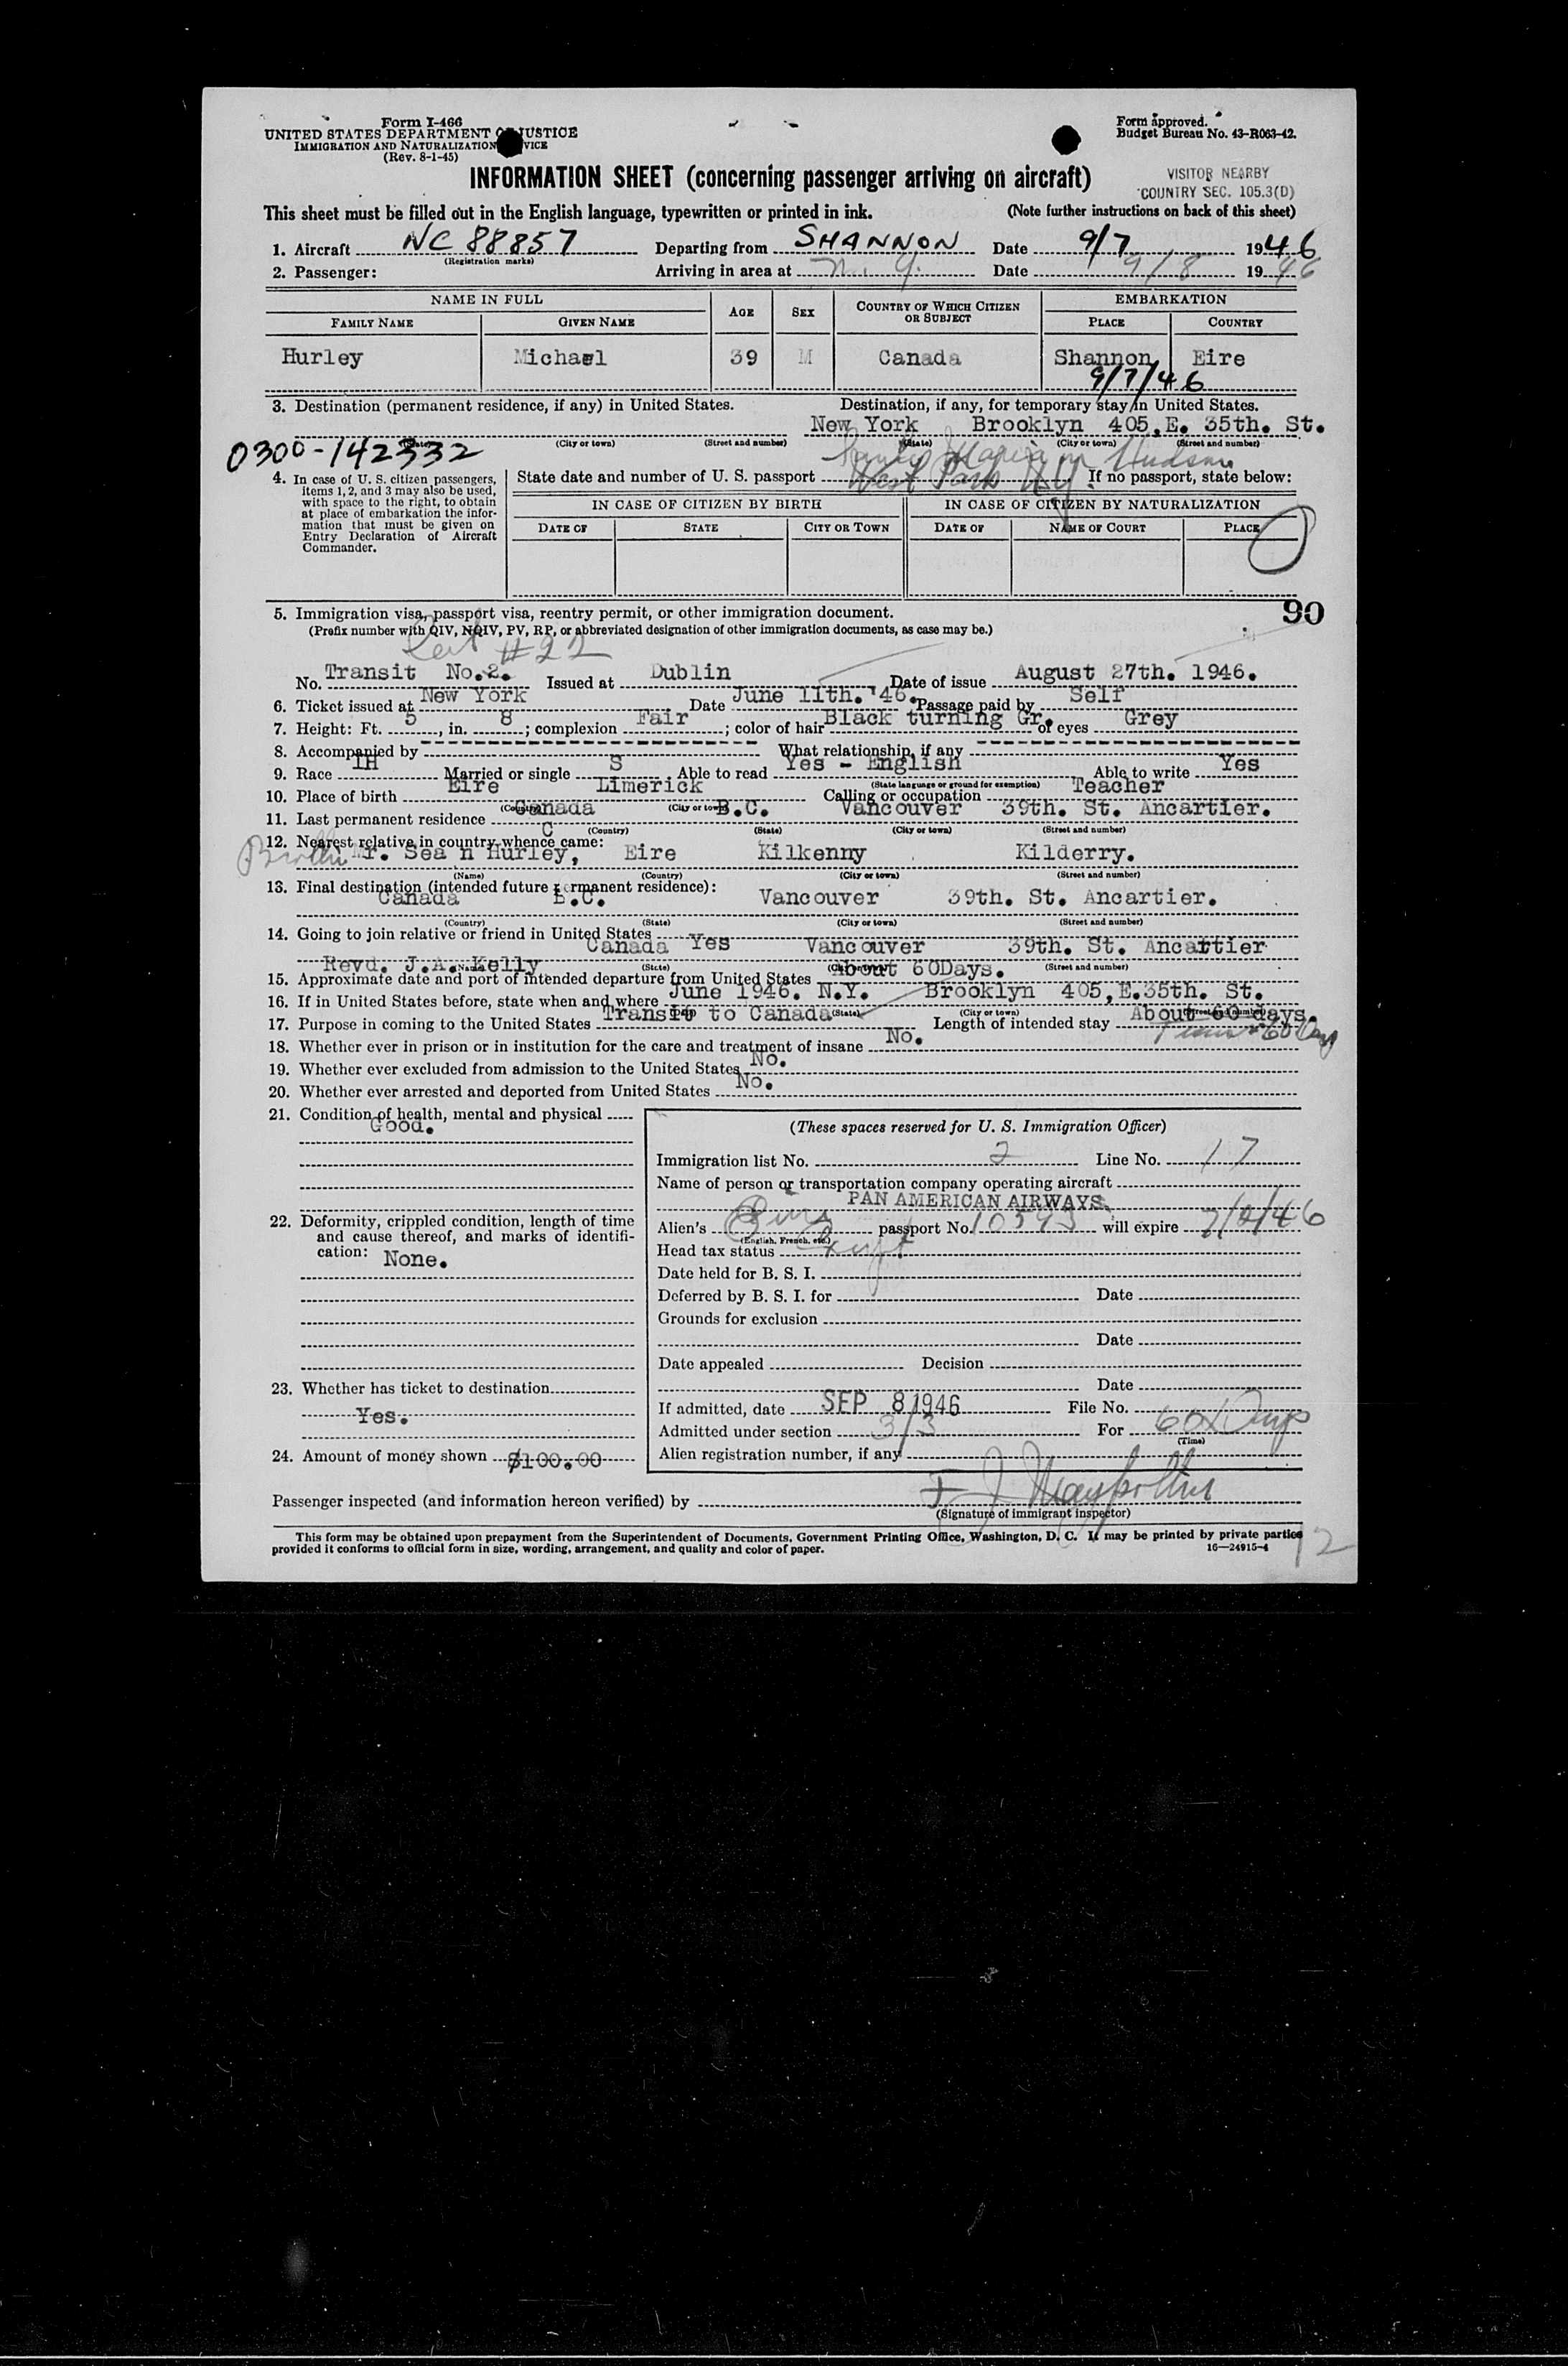 Form I-466
UNITED STATES DEPARTMENT OF JUSTICE
IMMIGRATION AND NATURALIZATION SERVICE
(Rev. 8-1-45)
Form approved.
Budget Bureau No. 43-R063-42.
INFORMATION SHEET (concerning passenger arriving on aircraft)
VISITOR NEARBY
COUNTRY SEC. 105.3(D)
This sheet must be filled out in the English language, typewritten or printed in ink. (Note further instructions on back of this sheet)
1. Aircraft NC 88857 Departing from SHANNON Date 9/7 1946
(Registration marks)
2. Passenger: Arriving in area at N. Y. Date 9/8 1946
NAME IN FULL AGE SEX COUNTRY OF WHICH CITIZEN OR SUBJECT EMBARKATION
FAMILY NAME GIVEN NAME PLACE COUNTRY
Hurley Michael 39 M Canada Shannon Eire
9/7/46
3. Destination (permanent residence, if any) in United States. Destination, if any, for temporary stay in United States.
New York Brooklyn 405,E. 35th. St.
(State) (City or town) (Street and number) (State) (City or town) (Street and number)
0300-142332
Maria on Hudson
West Park N.Y.
4. In case of U. S. citizen passengers, items 1, 2, and 3 may also be used, with space to the right, to obtain at place of embarkation the information that must be given on Entry Declaration of Aircraft Commander.
State date and number of U. S. passport If no passport, state below:
IN CASE OF CITIZEN BY BIRTH IN CASE OF CITIZEN BY NATURALIZATION
DATE OF STATE CITY OR TOWN DATE OF NAME OF COURT PLACE
90
5. Immigration visa, passport visa, reentry permit, or other immigration document.
(Prefix number with QIV, NQIV, PV, RP, or abbreviated designation of other immigration documents, as case may be.)
#22
No. Transit No.2. Issued at Dublin Date of issue August 27th. 1946.
6. Ticket issued at New York Date June 11th. '46. Passage paid by Self
7. Height: Ft. 5, in. 8; complexion Fair; color of hair Black turning Gr. of eyes Grey
8. Accompanied by What relationship, if any
9. Race IH Married or single S. Able to read Yes - English Able to write Yes
(State language or ground for exemption)
10. Place of birth Eire Limerick Calling or occupation Teacher
(Country) (City or town)
11. Last permanent residence Canada B.C. Vancouver 39th. St. Ancartier.
(Country) (State) (City or town) (Street and number)
12. Nearest relative in country whence came:
Brother Mr. Sea n Hurley, Eire Kilkenny Kilderry.
(Name) (Country) (City or town) (Street and number)
13. Final destination (intended future permanent residence):
Canada B.C. Vancouver 39th. St. Ancartier.
(Country) (State) (City or town) (Street and number)
14. Going to join relative or friend in United States Yes
Canada Vancouver 39th. St. Ancartier
Revd. J.A. Kelly
(Name) (State) (City or town) (Street and number)
15. Approximate date and port of intended departure from United States About 60Days.
16. If in United States before, state when and where June 1946. N.Y. Brooklyn 405,E.35th. St.
(State) (City or town) (Street and number)
17. Purpose in coming to the United States Transit to Canada Length of intended stay About 60 days.
60 Days
18. Whether ever in prison or in institution for the care and treatment of insane No.
19. Whether ever excluded from admission to the United States No.
20. Whether ever arrested and deported from United States No.
21. Condition of health, mental and physical
Good.
22. Deformity, crippled condition, length of time and cause thereof, and marks of identification: None.
23. Whether has ticket to destination
Yes.
24. Amount of money shown $100.00
(These spaces reserved for U. S. Immigration Officer)
Immigration list No. 2 Line No. 17
Name of person or transportation company operating aircraft
PAN AMERICAN AIRWAYS
Alien's Eire passport No. 10593 will expire
(English, French, etc.)
Head tax status Exempt
Date held for B. S. I.
Deferred by B. S. I. for Date
Grounds for exclusion
Date
Date appealed Decision
Date
If admitted, date SEP 8 1946 File No.
Admitted under section 3/3 For 60 Days
(Time)
Alien registration number, if any
Passenger inspected (and information hereon verified) by
(Signature of immigrant inspector)
This form may be obtained upon prepayment from the Superintendent of Documents, Government Printing Office, Washington, D. C. It may be printed by private parties
provided it conforms to official form in size, wording, arrangement, and quality and color of paper. 16—24915-4